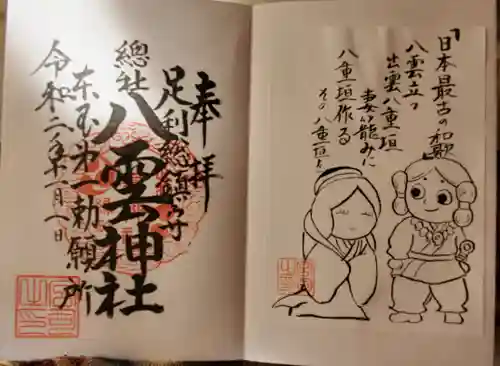 「日本最古の和歌」
八雲立つ
出雲八重垣
妻籠みに
八重垣作る
その八重垣を
奉拝
足利総鎮守
總社八雲神社
東国第一勅願所
令和二年一月一日